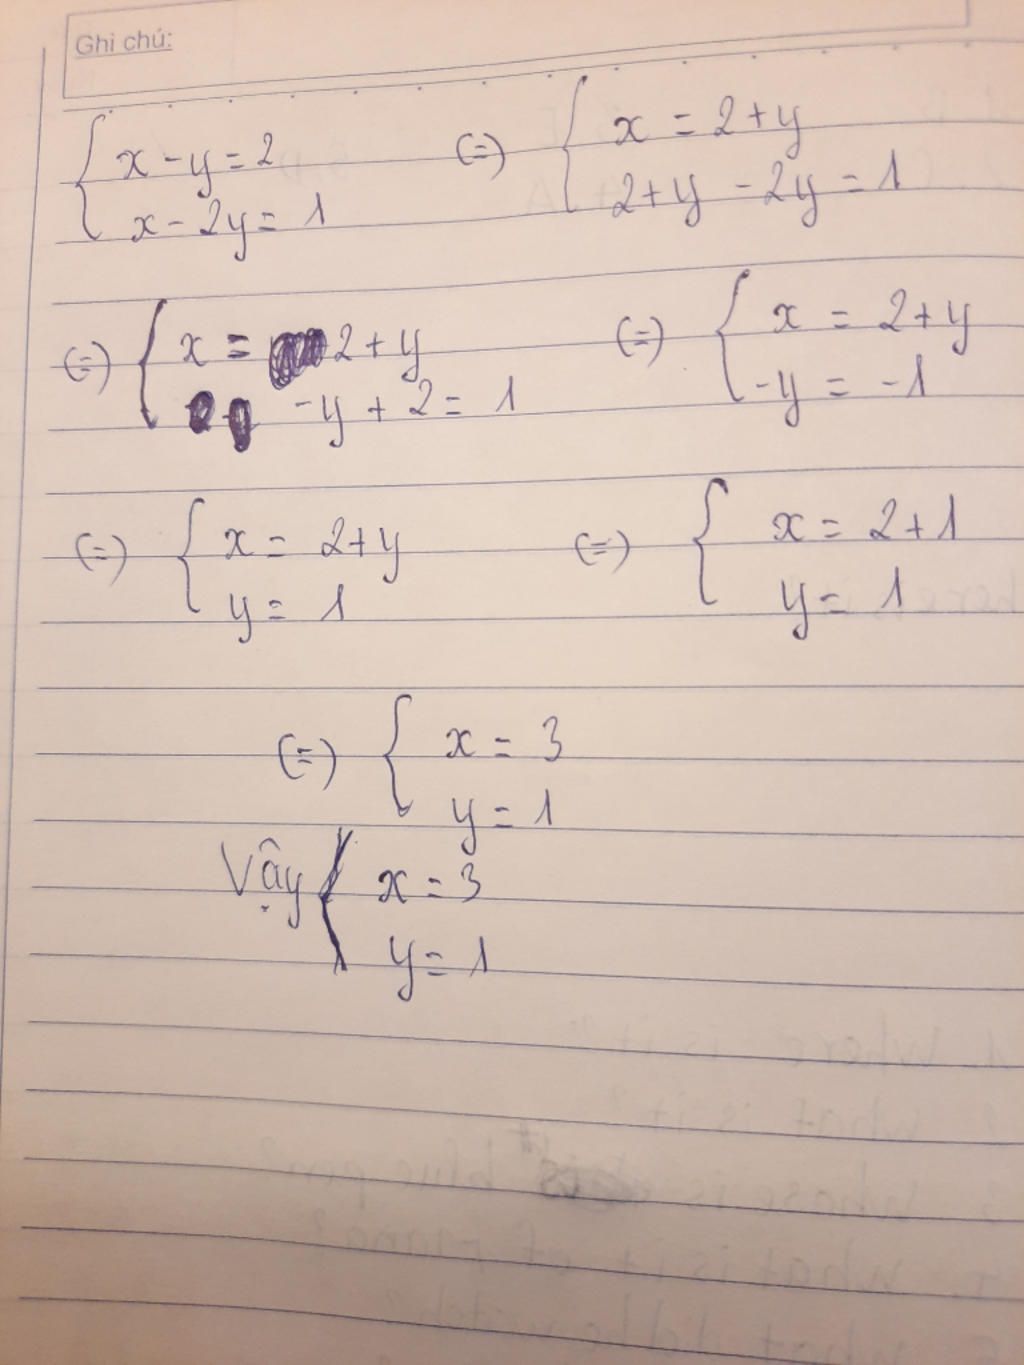 Ghi chú:
{ x - y = 2 (=) { x = 2 + y
x - 2y = 1 2 + y - 2y = 1
(=) { x = 2 + y (=) { x = 2 + y
-y + 2 = 1 -y = -1
(=) { x = 2 + y (=) { x = 2 + 1
y = 1 y = 1
(=) { x = 3
y = 1
Vậy { x = 3
y = 1